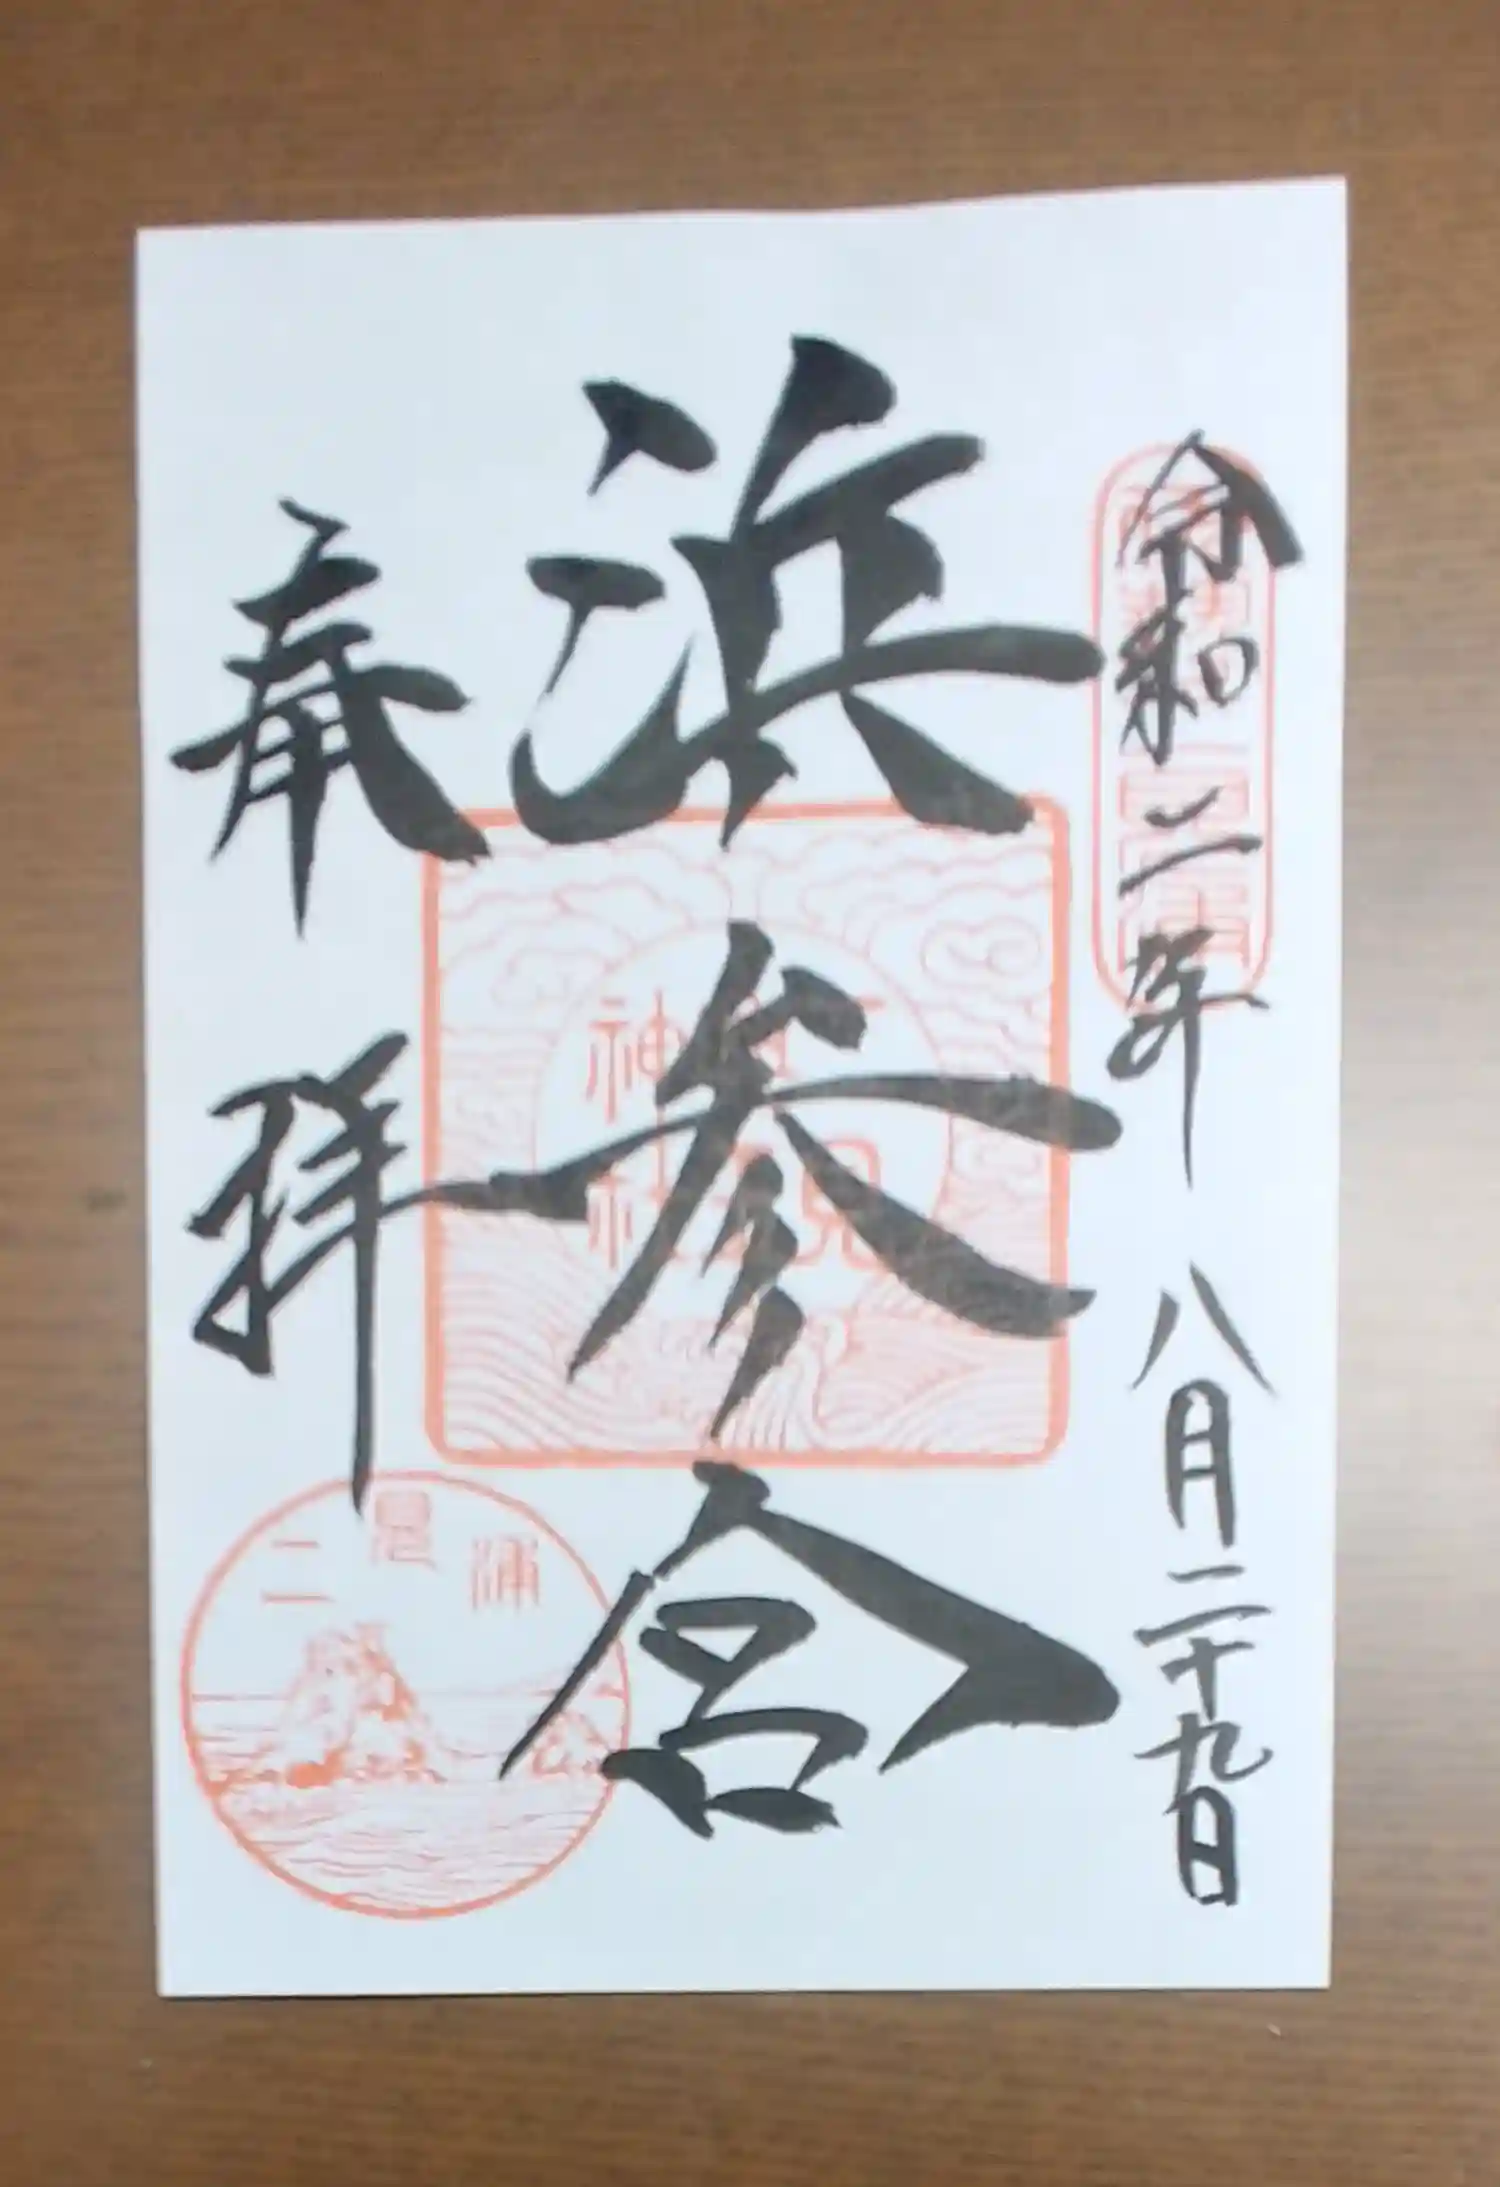 令和二年八月二十九日
浜参宮
奉拝
二見
神社
二見浦